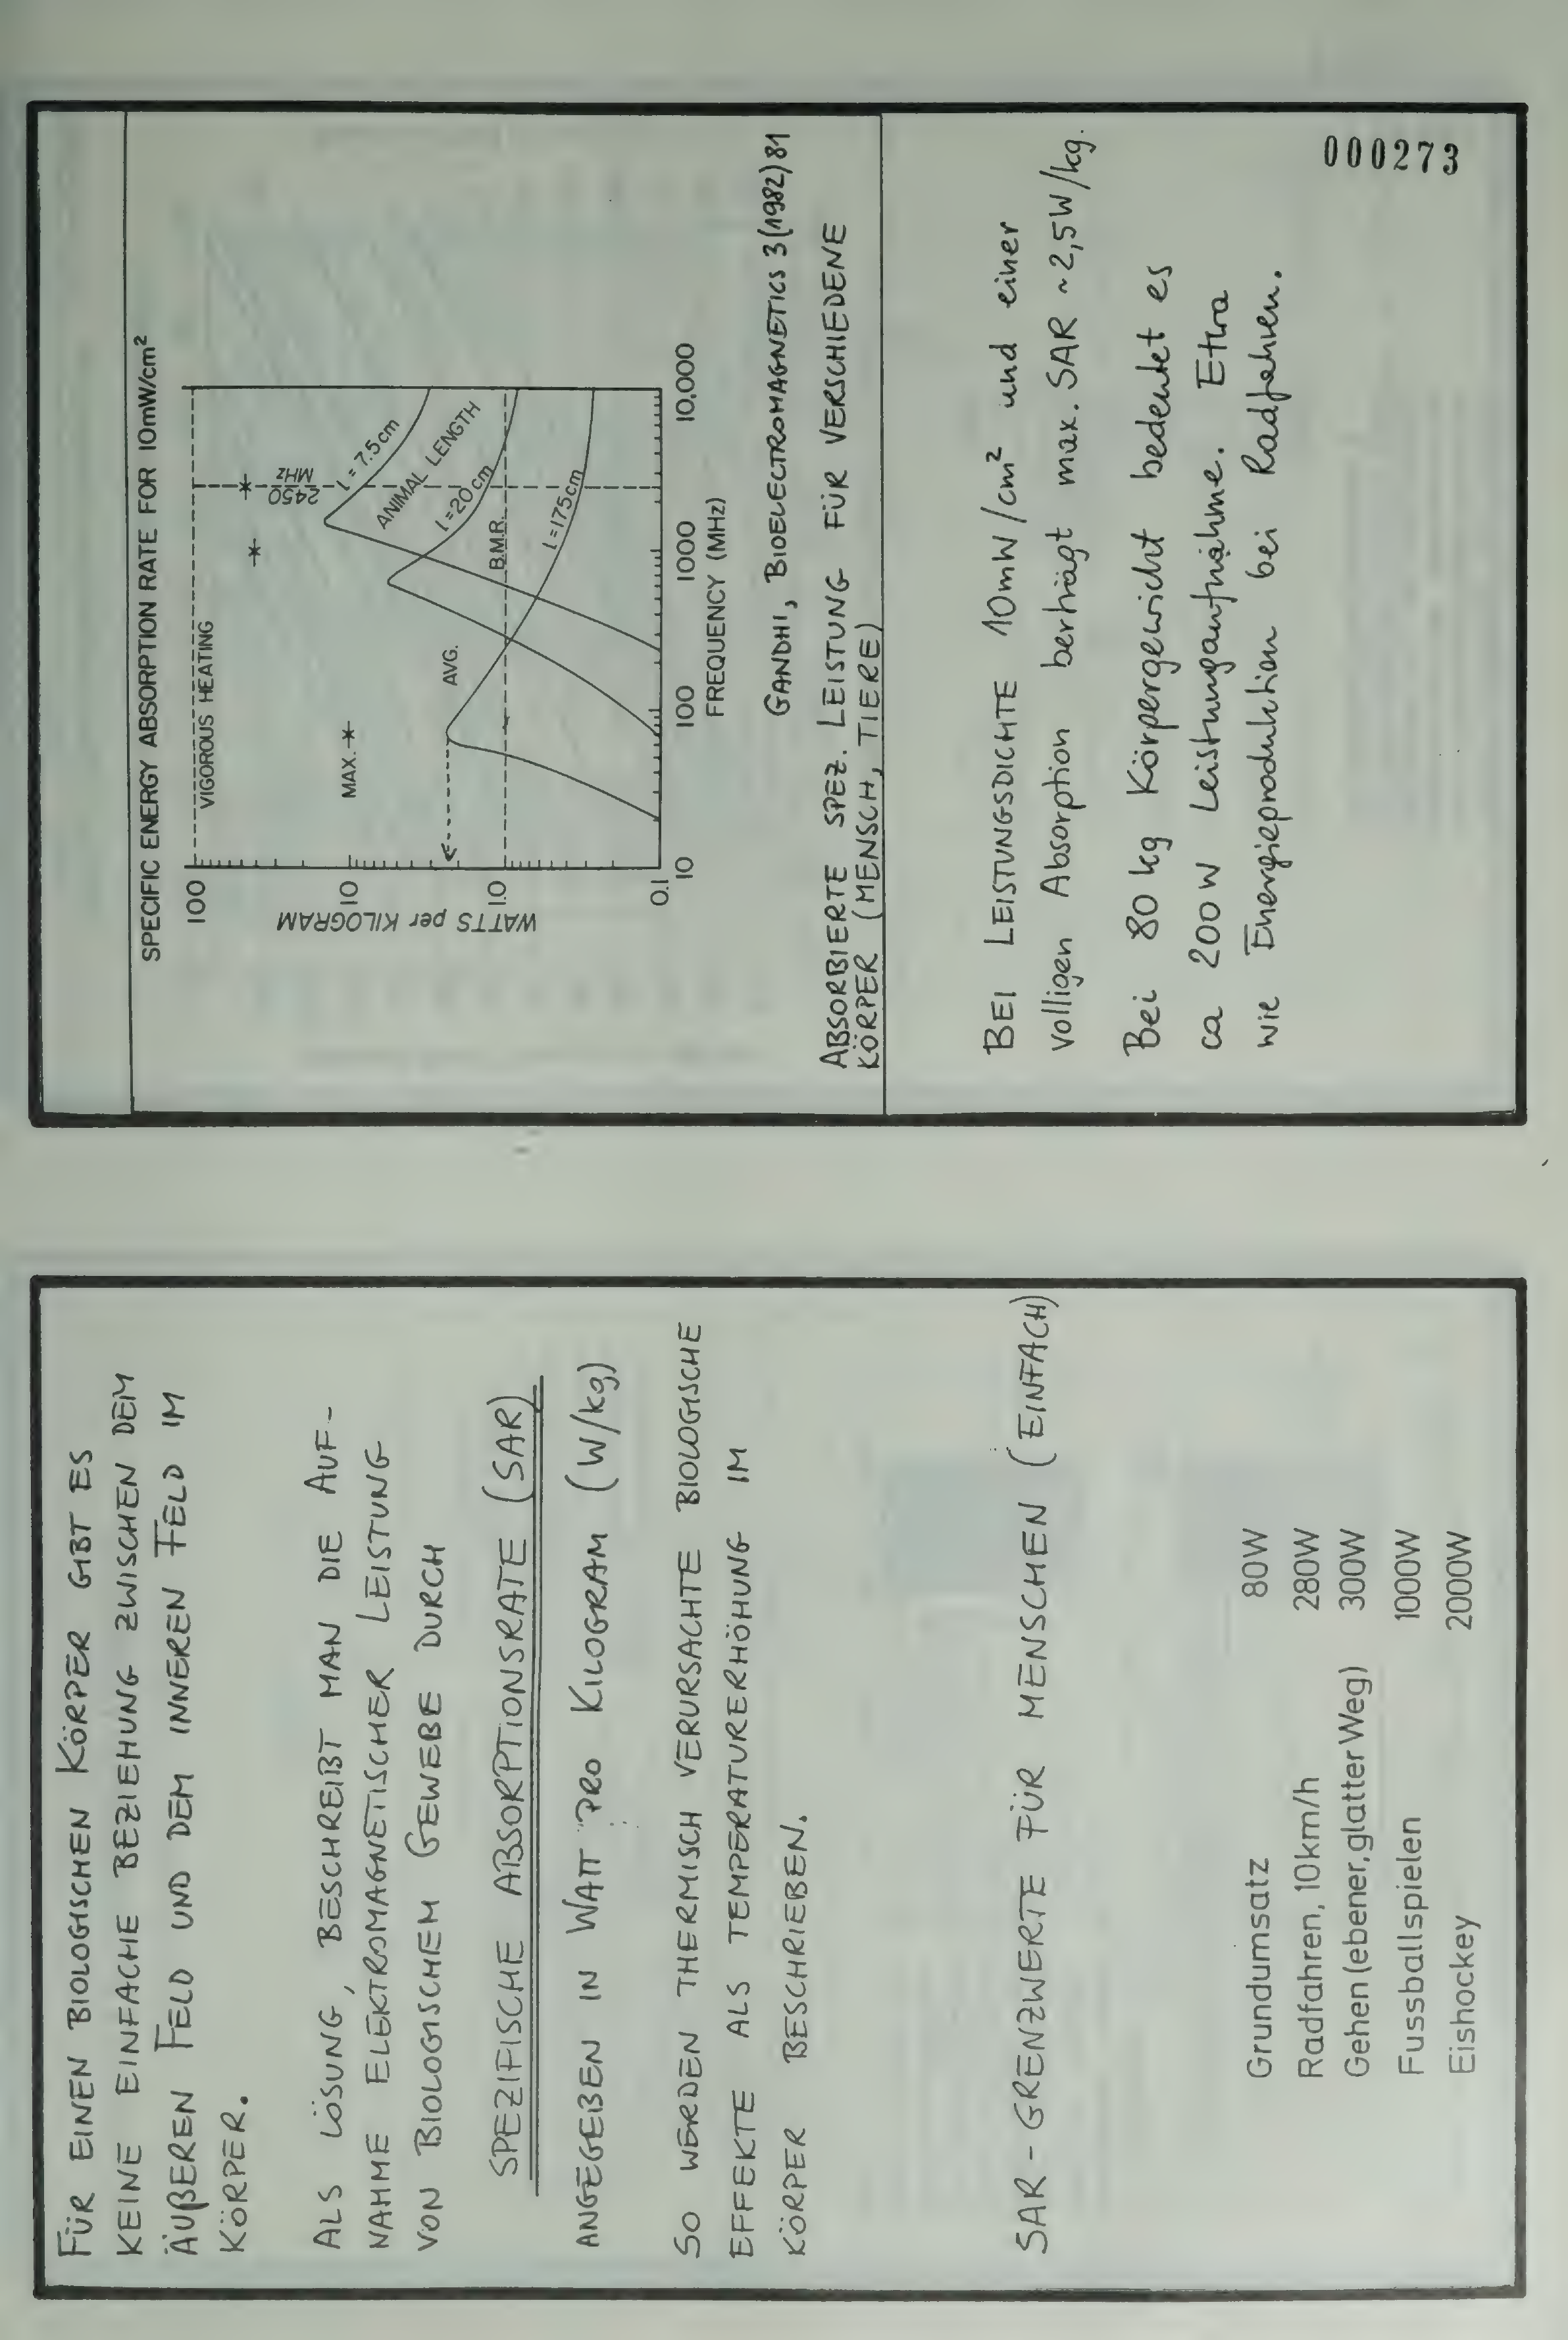 FÜR EINEN BIOLOGISCHEN KÖRPER GIBT ES
KEINE EINFACHE BEZIEHUNG ZWISCHEN DEM
ÄUßEREN FELD UND DEM INNEREN FELD IM
KÖRPER.
ALS LÖSUNG, BESCHREIBT MAN DIE AUF-
NAHME ELEKTROMAGNETISCHER LEISTUNG
VON BIOLOGISCHEM GEWEBE DURCH
SPEZIFISCHE ABSORPTIONSRATE (SAR)
ANGEGEBEN IN WATT PRO KILOGRAM (W/kg)
SO WERDEN THERMISCH VERURSACHTE BIOLOGISCHE
EFFEKTE ALS TEMPERATURERHÖHUNG IM
KÖRPER BESCHRIEBEN.
SAR-GRENZWERTE FÜR MENSCHEN (EINFACH)
Grundumsatz 80W
Radfahren, 10km/h 280W
Gehen (ebener, glatter Weg) 300W
Fussballspielen 1000W
Eishockey 2000W
SPECIFIC ENERGY ABSORPTION RATE FOR 10mW/cm²
100
VIGOROUS HEATING
2450
MHZ
l = 7.5cm
10
MAX.
ANIMAL LENGTH
AVG.
l=20cm
1.0
B.M.R.
l=175cm
0.1
WATTS per KILOGRAM
10 100 1000 10,000
FREQUENCY (MHz)
GANDHI, BIOELECTROMAGNETICS 3(1982)81
ABSORBIERTE SPEZ. LEISTUNG FÜR VERSCHIEDENE
KÖRPER (MENSCH, TIERE)
BEI LEISTUNGSDICHTE 10mW/cm² und einer
volligen Absorption berträgt max. SAR ~2,5W/kg.
Bei 80 kg Körpergewicht bedeutet es
ca 200W Leistungaufnahme. Etwa
wie Energieproduktion bei Radfahren.
000273